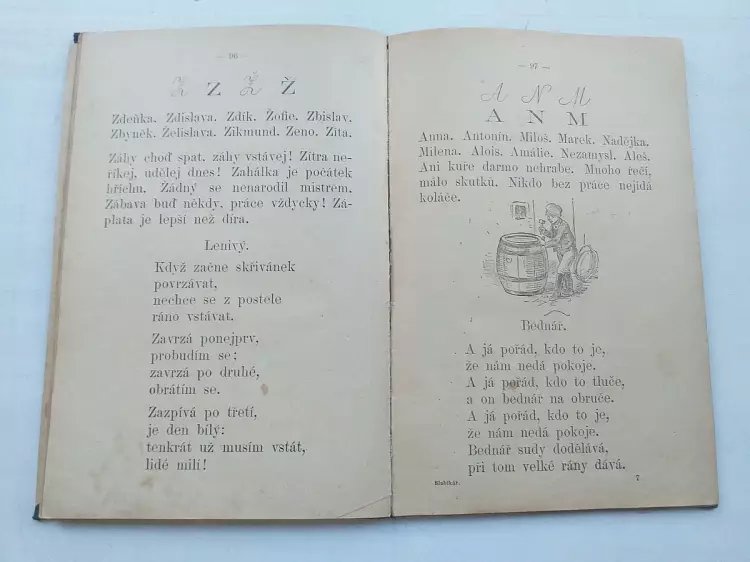 — 96 —
Z Z Ž Ž
Zdeňka. Zdislava. Zdík. Žofie. Zbislav.
Zbyněk. Želislava. Zikmund. Zeno. Zita.
Záhy choď spat, záhy vstávej! Zítra ne-
říkej, udělej dnes! Zahálka je počátek
hříchu. Žádný se nenarodil mistrem.
Zábava buď někdy, práce vždycky! Zá-
plata je lepší než díra.
Lenivý.
Když začne skřivánek
povrzávat,
nechce se z postele
ráno vstávat.
Zavrzá ponejprv,
probudím se:
zavrzá po druhé,
obrátím se.
Zazpívá po třetí,
je den bílý:
tenkrát už musím vstát,
lidé milí!
— 97 —
A N M
A N M
Anna. Antonín. Miloš. Marek. Nadějka.
Milena. Alois. Amálie. Nezamysl. Aleš.
Ani kuře darmo nehrabe. Mnoho řečí,
málo skutků. Nikdo bez práce nejídá
koláče.
Bednář.
A já pořád, kdo to je,
že nám nedá pokoje.
A já pořád, kdo to tluče,
a on bednář na obruče.
A já pořád, kdo to je,
že nám nedá pokoje.
Bednář sudy dodělává,
při tom velké rány dává.
Slabikář. 7